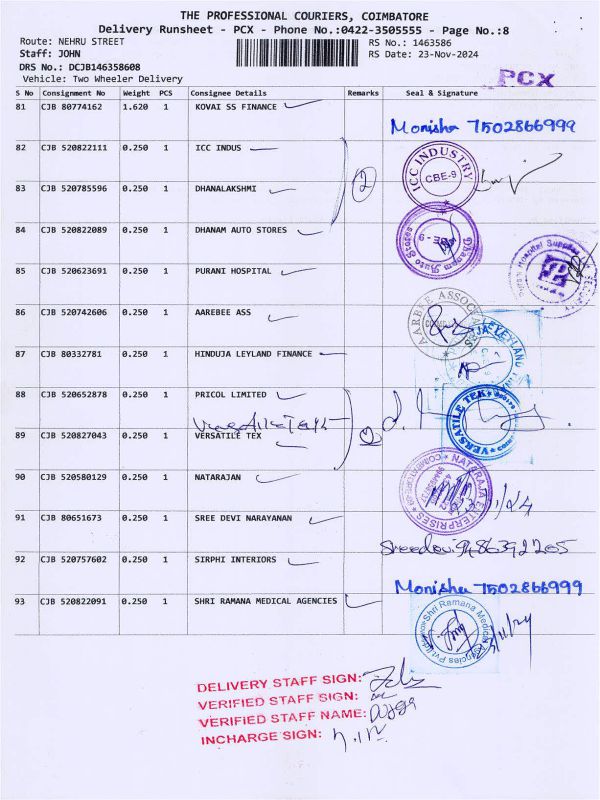 THE PROFESSIONAL COURIERS, COIMBATORE
Delivery Runsheet - PCX - Phone No.:0422-3505555 - Page No.:8
Route: NEHRU STREET
RS No.: 1463586
Staff: JOHN
RS Date: 23-Nov-2024
DRS No.: DCJB146358608
Vehicle: Two Wheeler Delivery
PCX
S No Consignment No Weight PCS Consignee Details Remarks Seal & Signature
81 CJB 80774162 1.620 1 KOVAI SS FINANCE
Monisha 7502866999
82 CJB 520822111 0.250 1 ICC INDUS
ICC INDUSTRY CBE-9
83 CJB 520785596 0.250 1 DHANALAKSHMI
2
84 CJB 520822089 0.250 1 DHANAM AUTO STORES
Dhanam Auto Stores
85 CJB 520623691 0.250 1 PURANI HOSPITAL
Hospital Supplies
SECURITY
86 CJB 520742606 0.250 1 AAREBEE ASS
AARBEE ASSOCIATES
87 CJB 80332781 0.250 1 HINDUJA LEYLAND FINANCE
LEYLAND
88 CJB 520652878 0.250 1 PRICOL LIMITED
VERSATILE TEK
89 CJB 520827043 0.250 1 VERSATILE TEX
2
90 CJB 520580129 0.250 1 NATARAJAN
NATARAJA ENTERPRISES
91 CJB 80651673 0.250 1 SREE DEVI NARAYANAN
Sreedevi 9486392265
92 CJB 520757602 0.250 1 SIRPHI INTERIORS
Monisha 7502866999
93 CJB 520822091 0.250 1 SHRI RAMANA MEDICAL AGENCIES
Shri Ramana Medical Agencies Pvt Limited
23/11/24
DELIVERY STAFF SIGN:
VERIFIED STAFF SIGN:
VERIFIED STAFF NAME:
INCHARGE SIGN: